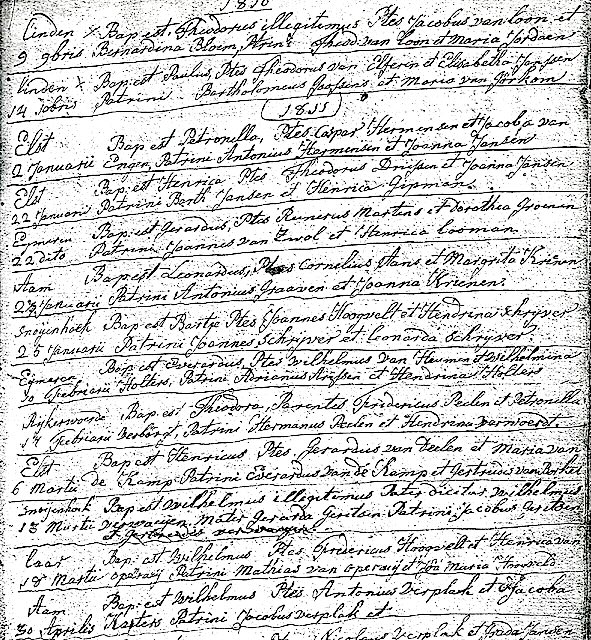 1810
linden Bap est Theodorus illegitimus Ptes Jacobus van loon et
9 9bris Bernardina Bloem, Ptrini Theod: van Loon et Maria Jordaen
linden Bap: est Paulus, Ptes Theodorus van Elferen et Elisabetha
14 Patrini Bartholomeus et Maria van
1811
Elst Bap est Petronella, Ptes Caspar Hermensen et Jacoba van
2 Januarii Engen, Patrini Antonius Harmensen et Joanna Jansen
Elst Bap: est Henrica Ptes Theodorus Driessen et Joanna Jansen
22 Januari Patrini Bern Jansen et Henrica Gipman.
Bap est Gerardus, Ptes Reinerus Martens et Dorothea Groenen
22 dito Patrini Joannis van Zwol et Henrica
Aam Bap est Leonardus, Ptes Cornelius Aans et Margrita
Januarii Patrini Antonius Graaven et Joanna Krienen
Snoijenhoek Bap est Bartje Ptes Joannes Hoogvelt et Hendrina Schrijver
25 Januarii Patrini Joannes Schrijver et Leonarda Schrijver.
Bap est Everardus, Ptes Wilhelmus van Heumen et Wilhelmina
Febriarii Holters, Patrini Adrianus et Hendrina Holters
Rijkerwoerd Bap est Theodora, Parentes Fredericus Peelen et Petronella
17 Febriarii Verborgt, Patrini Hermanus Peelen et Hendrena
Elst Bap est Henricus Ptes, Gerardus van Deelen et Maria van
6 Martii de Kamp Patrini Everardus van de Kamp et Gertruidis van
Snoijenhoek Bap est Wilhelmus illegitimus Pater dicitur Wilhelmus
13 Martii Verwaijen Mater Gerarda Geritsen Patrini Jacobus Geritsen
et
laar Bap: est Wilhelmus Ptes Fredericus Hoogvelt et Henrica van
18 Martii operaij Patrini Mathias van operaij et Maria Hoogveld
Aam Bap: est Wilhelmus Ptes Antonius Verplak et Jacoba
30 Aprilis Patrini Jacobus Verplak et
Nicolaus Verplak et Jansen